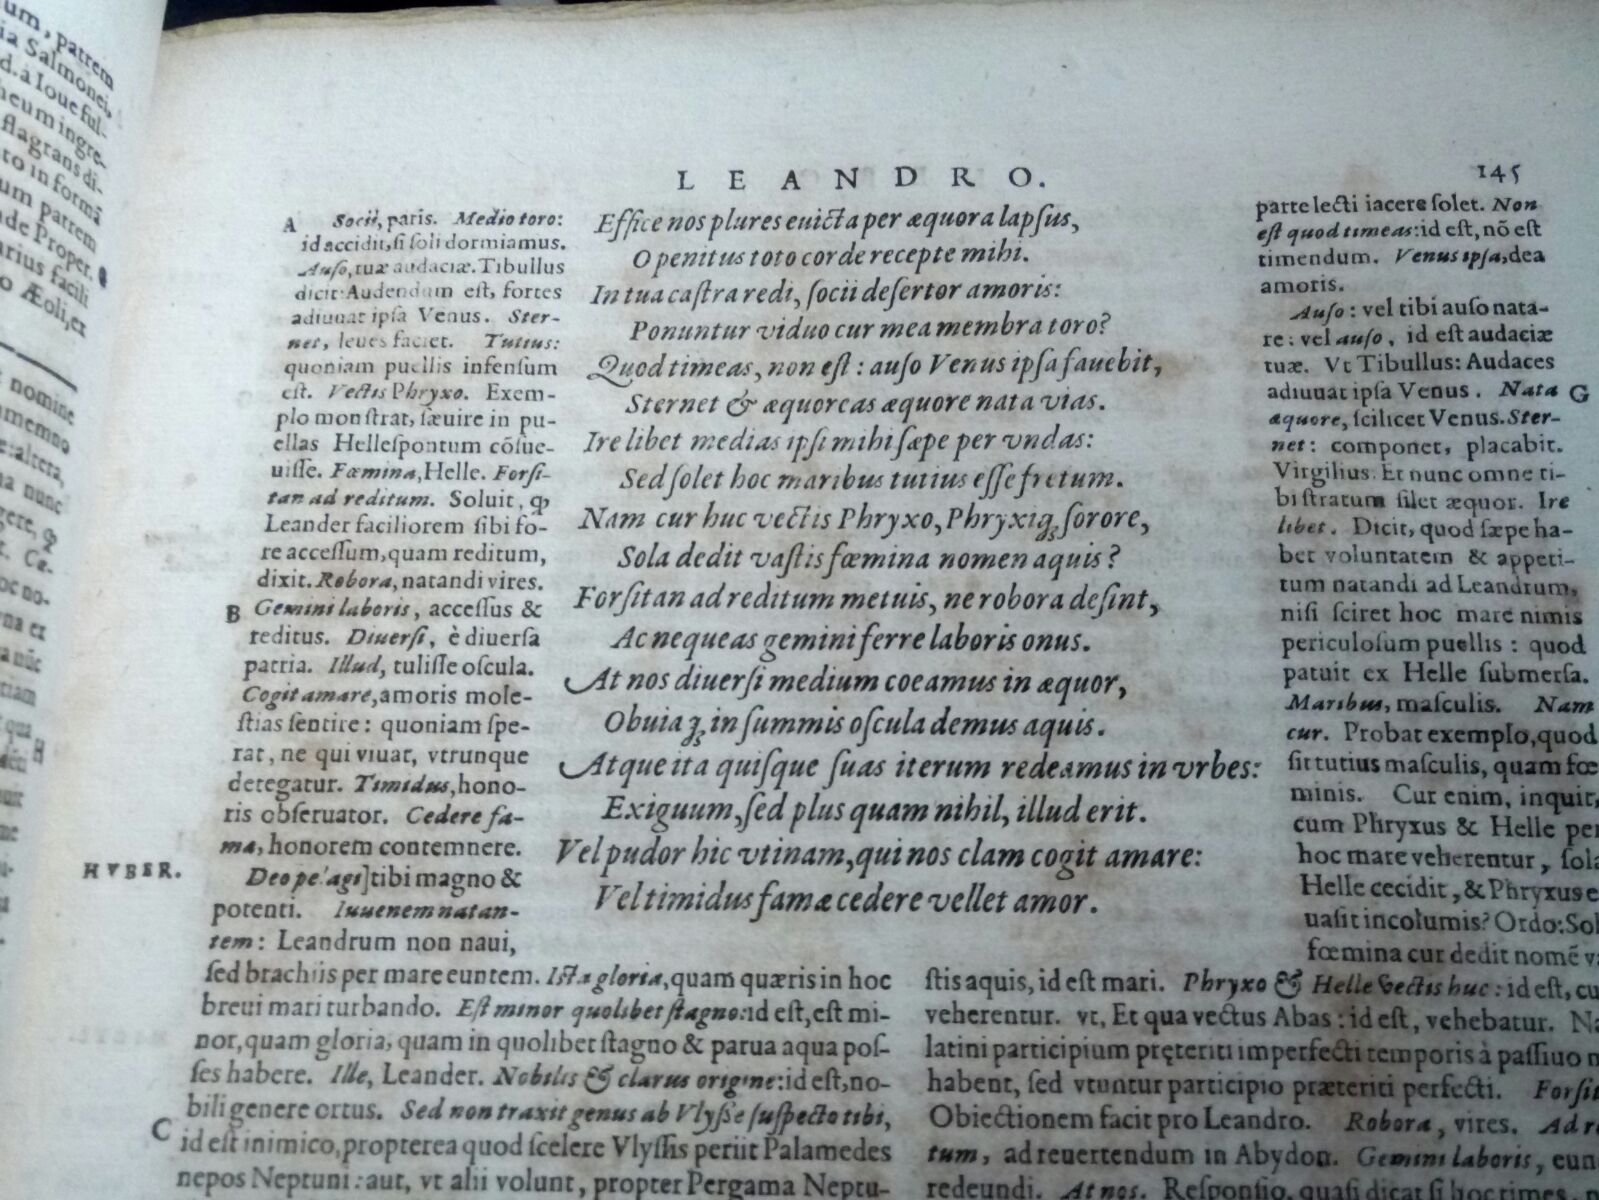 um, patrem
ia Salmonei,
d. à Ioue ful-
heum ingre-
flagrans di-
to in formā
um patrem
de Proper.
arius facili
o Æoli, ex
nomine
memno
e: altera,
na nunc
gere, ꝙ
t. Ca-
oc no-
na ex
a nūc
tiam
qua
H
LEANDRO.
145
A
Socii, patis. Medio toro:
id accidit, si soli dormiamus.
Auso, tuæ audaciæ. Tibullus
dicit: Audendum est, fortes
adiuuat ipsa Venus. Ster-
net, leues faciet. Tutius:
quoniam puellis infensum
est. Vectis Phryxo. Exem-
plo monstrat, sæuire in pu-
ellas Hellespontum cōsue-
uisse. Fœmina, Helle. Forsi-
tan ad reditum. Soluit, ꝙ
Leander faciliorem sibi fo-
re accessum, quam reditum,
dixit. Robora, natandi vires.
B
Gemini laboris, accessus &
reditus. Diuersi, è diuersa
patria. Illud, tulisse oscula.
Cogit amare, amoris mole-
stias sentire: quoniam spe-
rat, ne qui viuat, vtrunque
detegatur. Timidus, hono-
ris obseruator. Cedere fa-
ma, honorem contemnere.
HVBER.
Deo pelagi] tibi magno &
potenti. Iuuenem natan-
tem: Leandrum non naui,
sed brachiis per mare euntem. Ista gloria, quam quæris in hoc
breui mari turbando. Est minor quolibet stagno: id est, est mi-
nor, quam gloria, quam in quolibet stagno & parua aqua pos-
ses habere. Ille, Leander. Nobilis & clarus origine: id est, no-
bili genere ortus. Sed non traxit genus ab Vlysse suspecto tibi,
C
id est inimico, propterea quod scelere Vlyssis periit Palamedes
nepos Neptuni: aut, vt alii volunt, propter Pergama Neptu-
Effice nos plures euicta per æquora lapsus,
O penitus toto corde recepte mihi.
In tua castra redi, socii desertor amoris:
Ponuntur viduo cur mea membra toro?
Quod timeas, non est: auso Venus ipsa fauebit,
Sternet & æquoreas æquore nata vias.
Ire libet medias ipsi mihi sæpe per vndas:
Sed solet hoc maribus tutius esse fretum.
Nam cur huc vectis Phryxo, Phryxiq́; sorore,
Sola dedit vastis fœmina nomen aquis?
Forsitan ad reditum metuis, ne robora desint,
Ac nequeas gemini ferre laboris onus.
At nos diuersi medium coeamus in æquor,
Obuiaq́; in summis oscula demus aquis.
Atque ita quisque suas iterum redeamus in vrbes:
Exiguum, sed plus quam nihil, illud erit.
Vel pudor hic vtinam, qui nos clam cogit amare:
Vel timidus famæ cedere vellet amor.
parte lecti iacere solet. Non
est quod timeas: id est, nō est
timendum. Venus ipsa, dea
amoris.
Auso: vel tibi auso nata-
re: vel auso, id est audaciæ
tuæ. Vt Tibullus: Audaces
adiuuat ipsa Venus. Nata
G
æquore, scilicet Venus. Ster-
net: componet, placabit.
Virgilius. Et nunc omne ti-
bi stratum silet æquor. Ire
libet. Dicit, quod sæpe ha-
bet voluntatem & appeti-
tum natandi ad Leandrum,
nisi sciret hoc mare nimis
periculosum puellis: quod
patuit ex Helle submersa.
Maribus, masculis. Nam
cur. Probat exemplo, quod
sit tutius masculis, quam fœ
minis. Cur enim, inquit,
cum Phryxus & Helle per
hoc mare veherentur, sola
Helle cecidit, & Phryxus e
uasit incolumis? Ordo: Sol
fœmina cur dedit nomē va
stis aquis, id est mari. Phryxo & Helle vectis huc: id est, cu
veherentur. vt, Et qua vectus Abas: id est, vehebatur. Na
latini participium pręteriti imperfecti temporis à passiuo n
habent, sed vtuntur participio præteriti perfecti. Forsit
Obiectionem facit pro Leandro. Robora, vires. Ad re
tum, ad reuertendum in Abydon. Gemini laboris, eun
redeundi. At nos. Responsio, quasi dicat si hoc times,